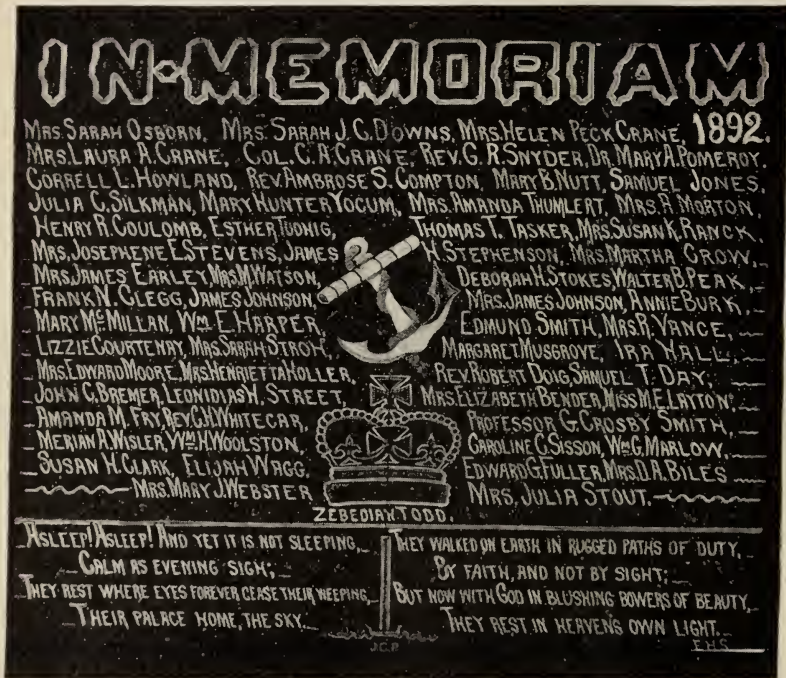 IN-MEMORIAM
MRS. SARAH OSBORN, MRS. SARAH J. C. DOWNS, MRS. HELEN PECK CRANE, 1892.
MRS. LAURA A. CRANE, COL. C. A. CRANE, REV. G. R. SNYDER, DR. MARY A. POMEROY,
CORRELL L. HOWLAND, REV. AMBROSE S. COMPTON, MARY B. NUTT, SAMUEL JONES,
JULIA C. SILKMAN, MARY HUNTER YOCUM, MRS. AMANDA THUMLERT, MRS. A. MORTON,
HENRY R. COULOMB, ESTHER TUDHIG, THOMAS T. TASKER, MRS. SUSAN K. RANCK,
MRS. JOSEPHENE E. STEVENS, JAMES H. STEPHENSON, MRS. MARTHA CROW,
MRS. JAMES EARLEY, MRS. M. WATSON, DEBORAH H. STOKES, WALTER B. PEAK,
FRANK N. CLEGG, JAMES JOHNSON, MRS. JAMES JOHNSON, ANNIE BURK,
MARY McMILLAN, Wm. E. HARPER, EDMUND SMITH, MRS. R. VANCE,
LIZZIE COURTENAY, MRS. SARAH STROH, MARGARET MUSGROVE, IRA HALL,
MRS. EDWARD MOORE, MRS. HENRIETTA HOLLER, REV. ROBERT DOIG, SAMUEL T. DAY,
JOHN C. BREMER, LEONIDIAS H. STREET, MRS. ELIZABETH BENDER, MISS M. E. LAYTON,
AMANDA M. FRY, REV. C. H. WHITECAR, PROFESSOR G. CROSBY SMITH,
MERIAN A. WISLER, Wm. H. WOOLSTON, CAROLINE C. SISSON, Wm. G. MARLOW,
SUSAN H. CLARK, ELIJAH WAGG, EDWARD G. FULLER, MRS. D. A. BILES
MRS. MARY J. WEBSTER MRS. JULIA STOUT.
ZEBEDIAH TODD.
ASLEEP! ASLEEP! AND YET IT IS NOT SLEEPING,
CALM AS EVENING SIGH;
THEY REST WHERE EYES FOREVER CEASE THEIR WEEPING,
THEIR PALACE HOME, THE SKY.
THEY WALKED ON EARTH IN RUGGED PATHS OF DUTY,
BY FAITH, AND NOT BY SIGHT;
BUT NOW WITH GOD IN BLUSHING BOWERS OF BEAUTY,
THEY REST IN HEAVEN'S OWN LIGHT.
J.C.P.
E.H.S.